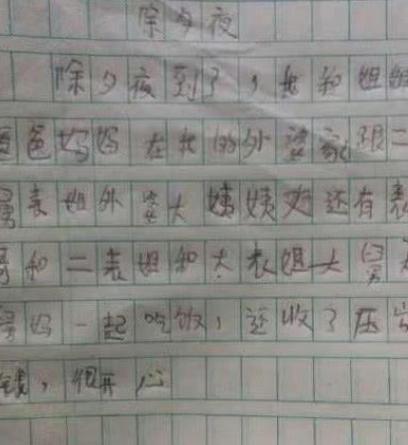 除夕夜
除夕夜到了，我和姐姐
爸妈妈在我的外婆家跟二
表姐外婆大姨姨丈还有表
哥和二表姐和大表姐大舅
妈一起吃饭，还收了压岁
钱，很开心